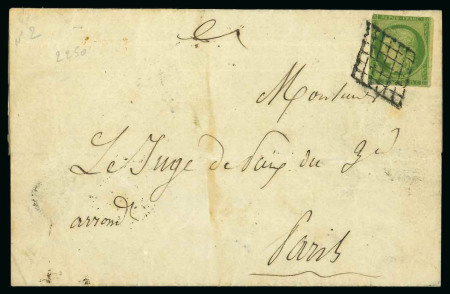 n° 2
2250
Monsieur
Le Juge de Paix du 3e
arrondt
Paris